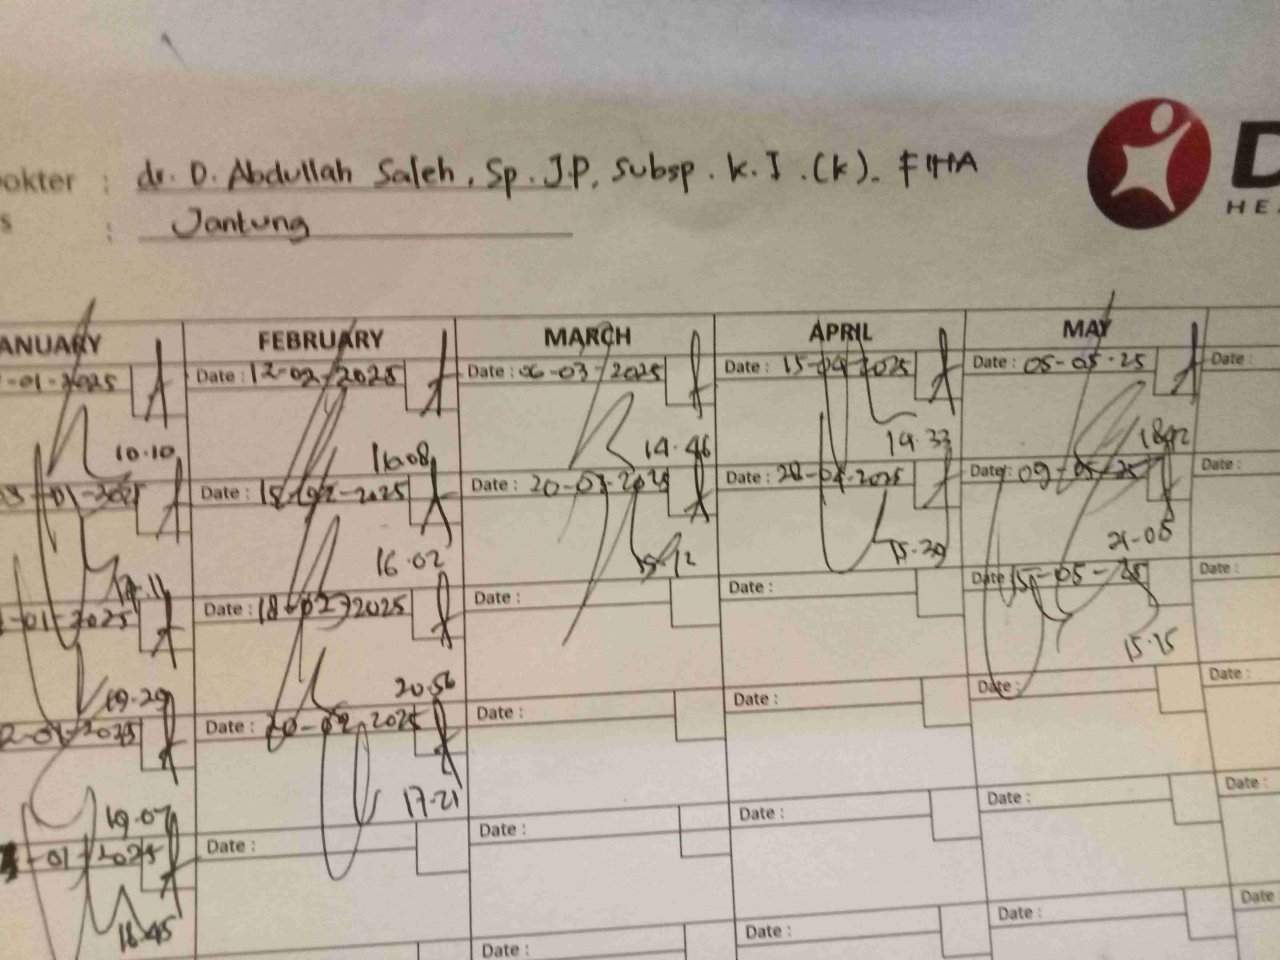 okter : dr. D. Abdullah Saleh, Sp. J.P, Subsp. K. I. (K). FIHA
s : Jantung
D
HEA
ANUARY FEBRUARY MARCH APRIL MAY
-01-2025 Date : 12-02-2025 Date : 06-03-2025 Date : 15-04-2025 Date : 05-05-25 Date :
10.10 16.08 14.46 14.33
-01-2025 Date : Date : 20-03-2025 Date : 28-04-2025 Date : 09-05-25 Date :
16.02 15.39 21.05
-01-2025 Date : 18-02-2025 Date : Date : Date 15-05-25 Date :
19.29 20.56 15.15
2-01-2025 Date : 20-02-2025 Date : Date : Date : Date :
19.07 17.21
-01-2025 Date : Date : Date : Date : Date :
16.45
Date : Date : Date : Date